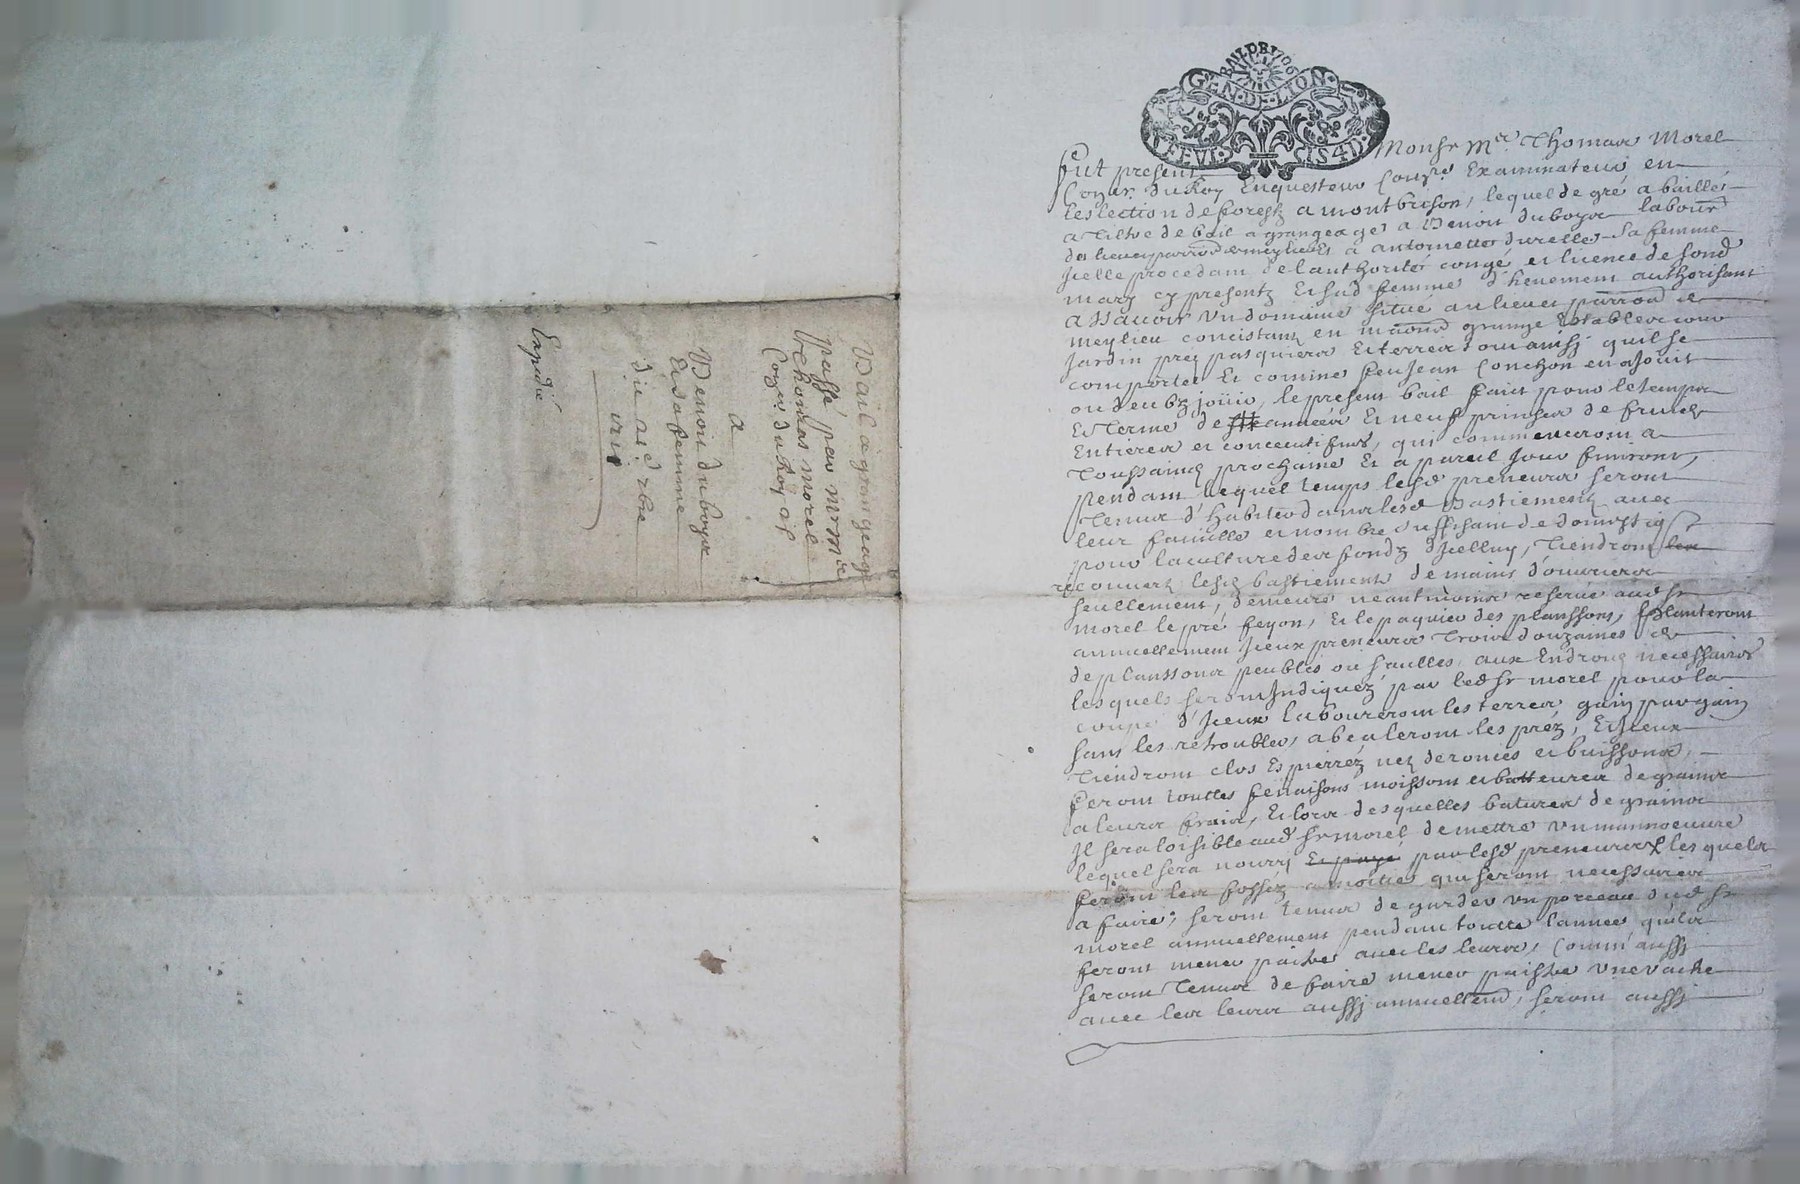 Bail a grangeage
passé par mr me
Thomas morel
Coner du Roy &c
a
Benoit duboyx
Et sa femme
du 21e 7bre
Expedié
BAIL DE 1706
GEN·DE·LION·
FEVI· 1S4D·
fut present Monsr Mre Thomas Morel
Coner du Roy Enquesteur Examinateur en
leslection de forestz a montbrison, lequel de gré a baillé
a tiltre de bail a grangeage a Benoit duboyx labour
du lieu et parroe de meylieu Et a antoinette durelle sa femme
Jcelle procedam de lauthorité congé et licence de sond
mary cy present Et sad femme dhuement authorisant
assauoir vn domaine situé au lieu et parroe de
meylieu concistant en maison grange Estables cour
Jardin prez pasquiers Et terres tout ainsj quil se
comporte Et comme feu Jean Conchon en a Jouit
ou deub joüir, le present bail faict pour le temps
Et terme de annees Et neuf prinses de fruicts
Entieres et concecutifues, qui commenceront a
Toussainct prochaine Et a pareil Jour finiront,
pendant lequel temps lesd preneurs seront
tenus d'habiter dans lesd Bastiements auec
leur famille et nombre suffisant de domestiq
pour la culture des fondz d'Jcelluy, tiendront les
recouuerts lesd bastiements de mains d'ouurier
seullement, demeure neantmoins reserué aud sr
morel le pré feyon, Et le paquier des planssons, planteront
annuellement Jceux preneurs trois douzaines de
de planssons peubles ou saulles aux Endroits necessaires
lesquels seront Jndiquez par led sr morel pour la
coupe d'Jceux laboureront les terres gain par gain
sans les retroubler, abealeront les préz, Et Jceux
tiendront clos Espierréz nez de ronces et buissons,
feront touttes fenaisons moissons et batteures de grains
a leurs frais, Et lors desquelles batures de grains
Jl sera loisible aud sr morel de mettre vn mannoeuure
lequel sera nourry Et payé par lesd preneurs lesquels
feront les fosséz a moitié qui seront necessaires
a faire, seront tenus de garder vn porceau dud sr
morel annuellement pendant toutte lannee quils
feront mener paitre auec les leurs, Comm'aussj
seront tenus de faire mener paistre vne vache
auec les leurs aussj annuellemt, seront aussj